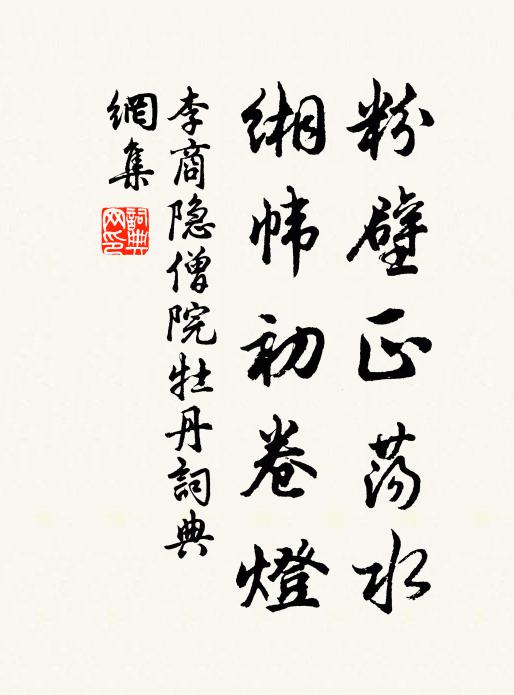 粉壁正荡水
缃幃初卷燈
李商隐僧院牡丹詞典
網集
詞典網印